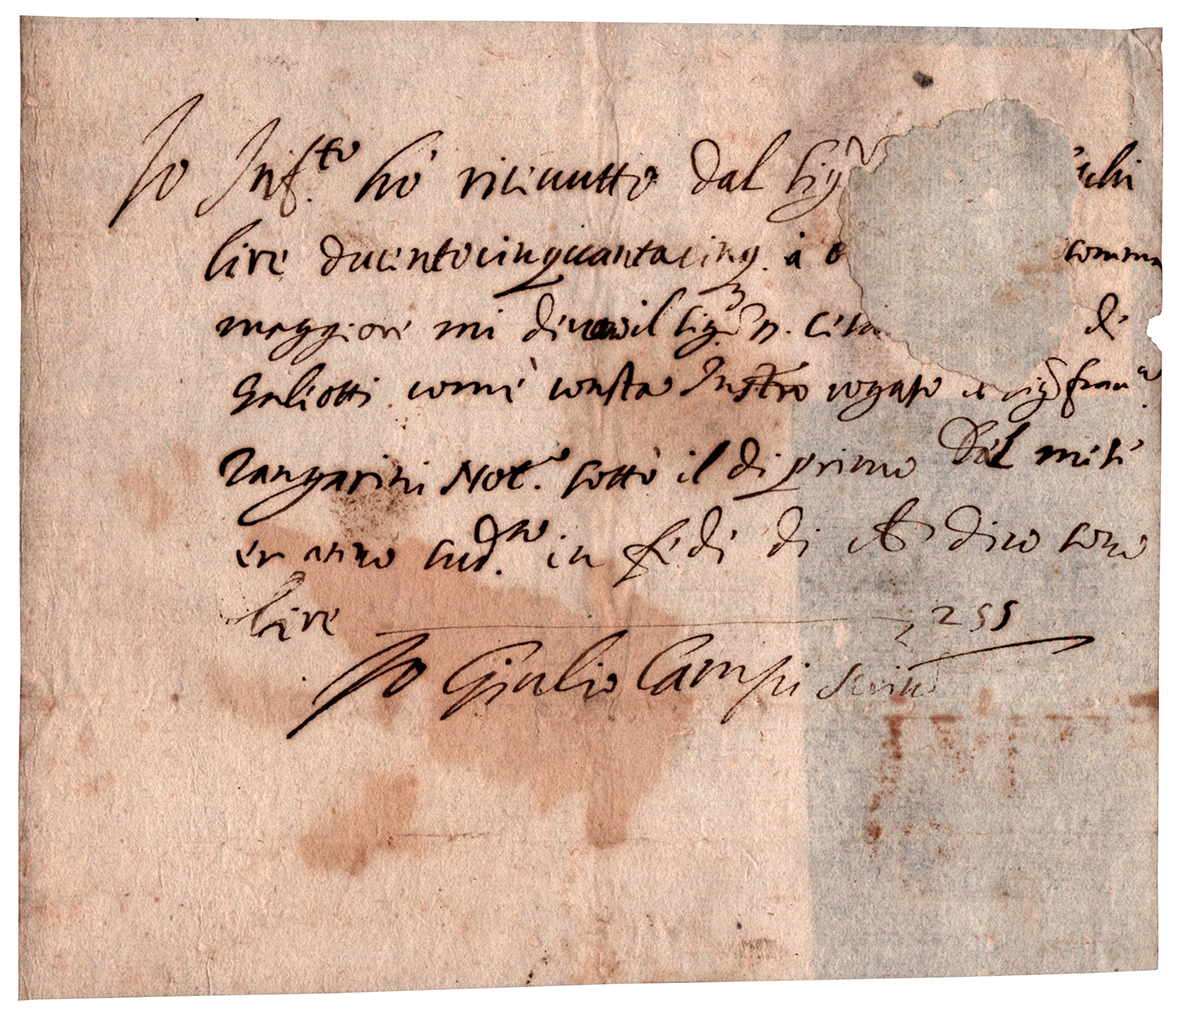 Io Inf.to hò riceuutto dal Sig.r
lire ducentocinquantacinq. à comma
maggiore mi deue il Sig.r di
Galiotti come consta Instro rogato Sig. Fran.co
Zangarini Not.o sotto il di primo del mese
et anno sud.to in fede di dico sono
lire 255
Io Giulio Campi